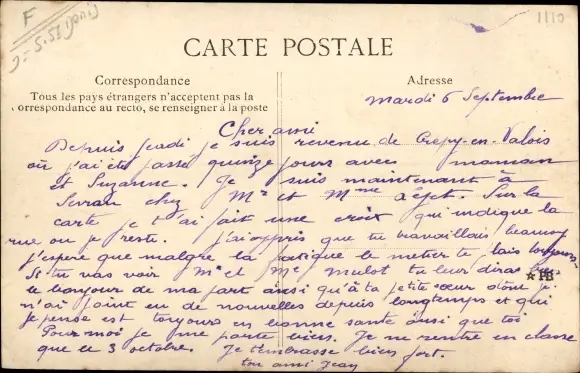 F
1110
CARTE POSTALE
Correspondance
Adresse
Tous les pays étrangers n'acceptent pas la
correspondance au recto, se renseigner à la poste
Mardi 6 Septembre
Cher ami
Depuis jeudi je suis revenu de Crepy-en-Valois
où j'ai été passé quinze jours avec maman
et Suzanne. Je suis maintenant à
Sevran chez Mr et Mme Sur la
carte je t'ai fait une croix qui indique la
rue ou je reste. J'ai appris que tu travaillais beaucoup
j'espère que malgré la fatigue le metier te plais toujours.
Si tu vas voir Mr et Me Mulot tu leur diras bien
le bonjour de ma part ainsi qu'à ta petite sœur dont je
n'ai point eu de nouvelles depuis longtemps et qui
je pense est toujours en bonne santé ainsi que toi
Pour moi je me porte bien. Je ne rentre en classe
que le 3 octobre. Je t'embrasse bien fort.
ton ami Jean